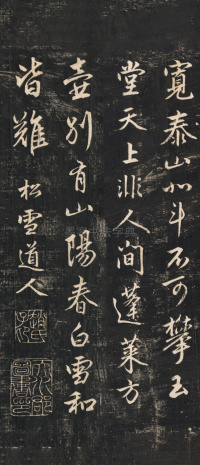 寛泰山北斗不可攀玉
堂天上非人间蓬莱方
壶别有山陽春白雪和
皆難 松雪道人